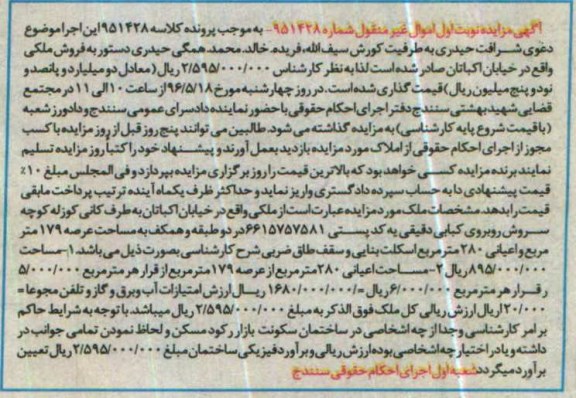 آگهی مزایده نوبت اول اموال غیر منقول شماره ۹۵۱۴۲۸- به موجب پرونده کلاسه ۹۵۱۴۲۸ این اجرا موضوع
دعوی شرافت حیدری به طرفیت کورش سیف الله، فریده، خالد، محمد، همگی حیدری دستور به فروش ملکی
واقع در خیابان اکباتان صادر شده است لذا به نظر کارشناس ۲/۵۹۵/۰۰۰/۰۰۰ ریال (معادل دو میلیارد و پانصد و
نود و پنج میلیون ریال) قیمت گذاری شده است. در روز چهارشنبه مورخ ۹۶/۵/۱۸ از ساعت ۱۰ الی ۱۱ در مجتمع
قضایی شهید بهشتی سنندج دفتر اجرای احکام حقوقی با حضور نماینده دادسرای عمومی سنندج و دادورز شعبه
(با قیمت شروع پایه کارشناسی) به مزایده گذاشته می شود. طالبین می توانند پنج روز قبل از روز مزایده با کسب
مجوز از اجرای احکام حقوقی از املاک مورد مزایده بازدید بعمل آورند و پیشنهاد خود را کتباً روز مزایده تسلیم
نمایند برنده مزایده کسی خواهد بود که بالاترین قیمت را روز برگزاری مزایده بپردازد و فی المجلس مبلغ ۱۰٪
قیمت پیشنهادی را به حساب سپرده دادگستری واریز نماید و حداکثر ظرف یکماه آینده ترتیب پرداخت مابقی
قیمت را بدهد. مشخصات ملک مورد مزایده عبارت است از ملکی واقع در خیابان اکباتان به طرف کانی کوزله کوچه
سروش روبروی کبابی دقیقی به کد پستی ۶۶۱۵۷۵۷۵۸۱ در دو طبقه و همکف به مساحت عرصه ۱۷۹ متر
مربع و اعیانی ۲۸۰ متر مربع اسکلت بنایی و سقف طاق ضربی شرح کارشناسی بصورت ذیل می باشد. ۱- مساحت
۸۹۵/۰۰۰/۰۰۰ ریال ۲- مساحت اعیانی ۲۸۰ متر مربع از عرصه ۱۷۹ متر مربع از قرار هر متر مربع ۵/۰۰۰/۰۰۰
ر قرار هر متر مربع ۶/۰۰۰/۰۰۰ ریال =/۱۶۸۰/۰۰۰/۰۰۰ ریال ارزش امتیازات آب و برق و گاز و تلفن مجموعا=
۲۰/۰۰۰ ریال ارزش ریالی کل ملک فوق الذکر به مبلغ ۲/۵۹۵/۰۰۰/۰۰۰ ریال میباشد. با توجه به شرایط حاکم
بر امر کارشناسی وجدا از چه اشخاصی در ساختمان سکونت بازار رکود مسکن و لحاظ نمودن تمامی جوانب در
داشته و یا در اختیار چه اشخاصی بوده ارزش ریالی و برآورد فیزیکی ساختمان مبلغ ۲/۵۹۵/۰۰۰/۰۰۰ ریال تعیین
برآورد میگردد شعبه اول اجرای احکام حقوقی سنندج